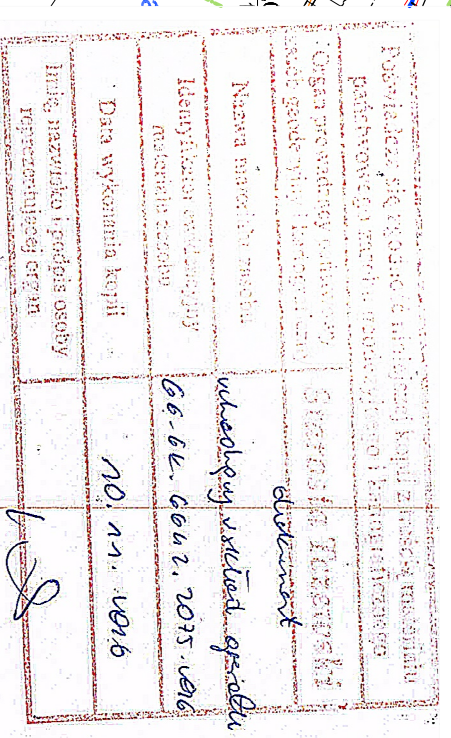 Poświadcza się zgodność niniejszej kopii z treścią materiału
państwowego zasobu geodezyjnego i kartograficznego
Organ prowadzący państwowy
zasób geodezyjny i kartograficzny
Starosta
Nazwa materiału zasobu
dokument
wchodzący w skład operatu
Identyfikator ewidencyjny
materiału zasobu
GG-GK.6642.2075.2016
Data wykonania kopii
10.11.2016
Imię, nazwisko i podpis osoby
reprezentującej organ